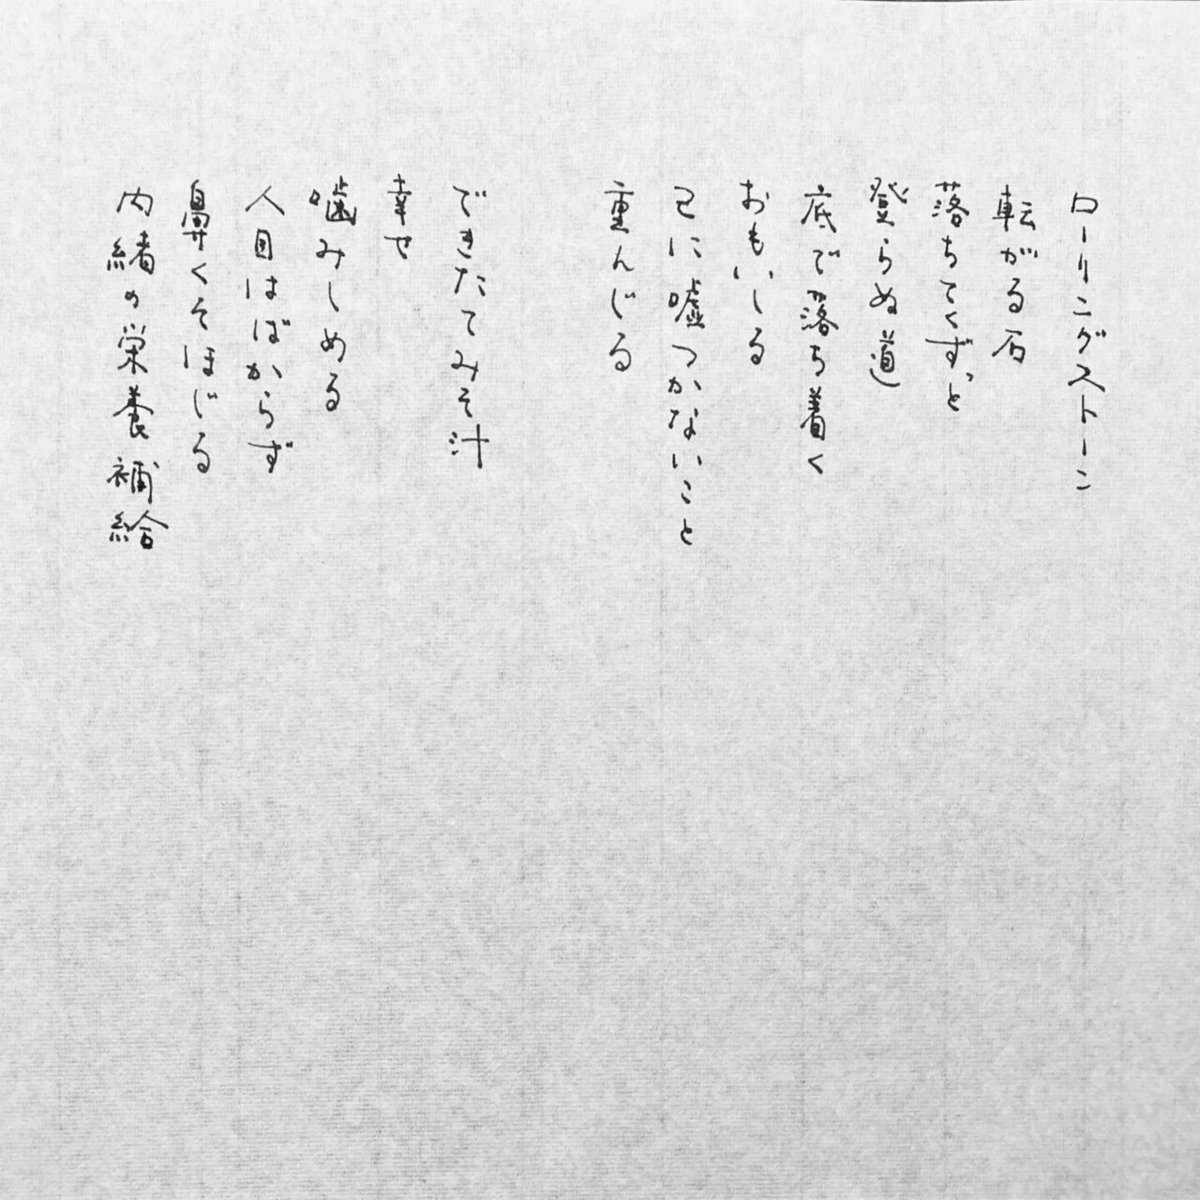 ローリングストーン
転がる石
落ちてくずっと
登らぬ道
底で落ち着く
おもいしる
己に嘘つかないこと
重んじる
できたてみそ汁
幸せ
噛みしめる
人目はばからず
鼻くそほじる
内緒の栄養補給